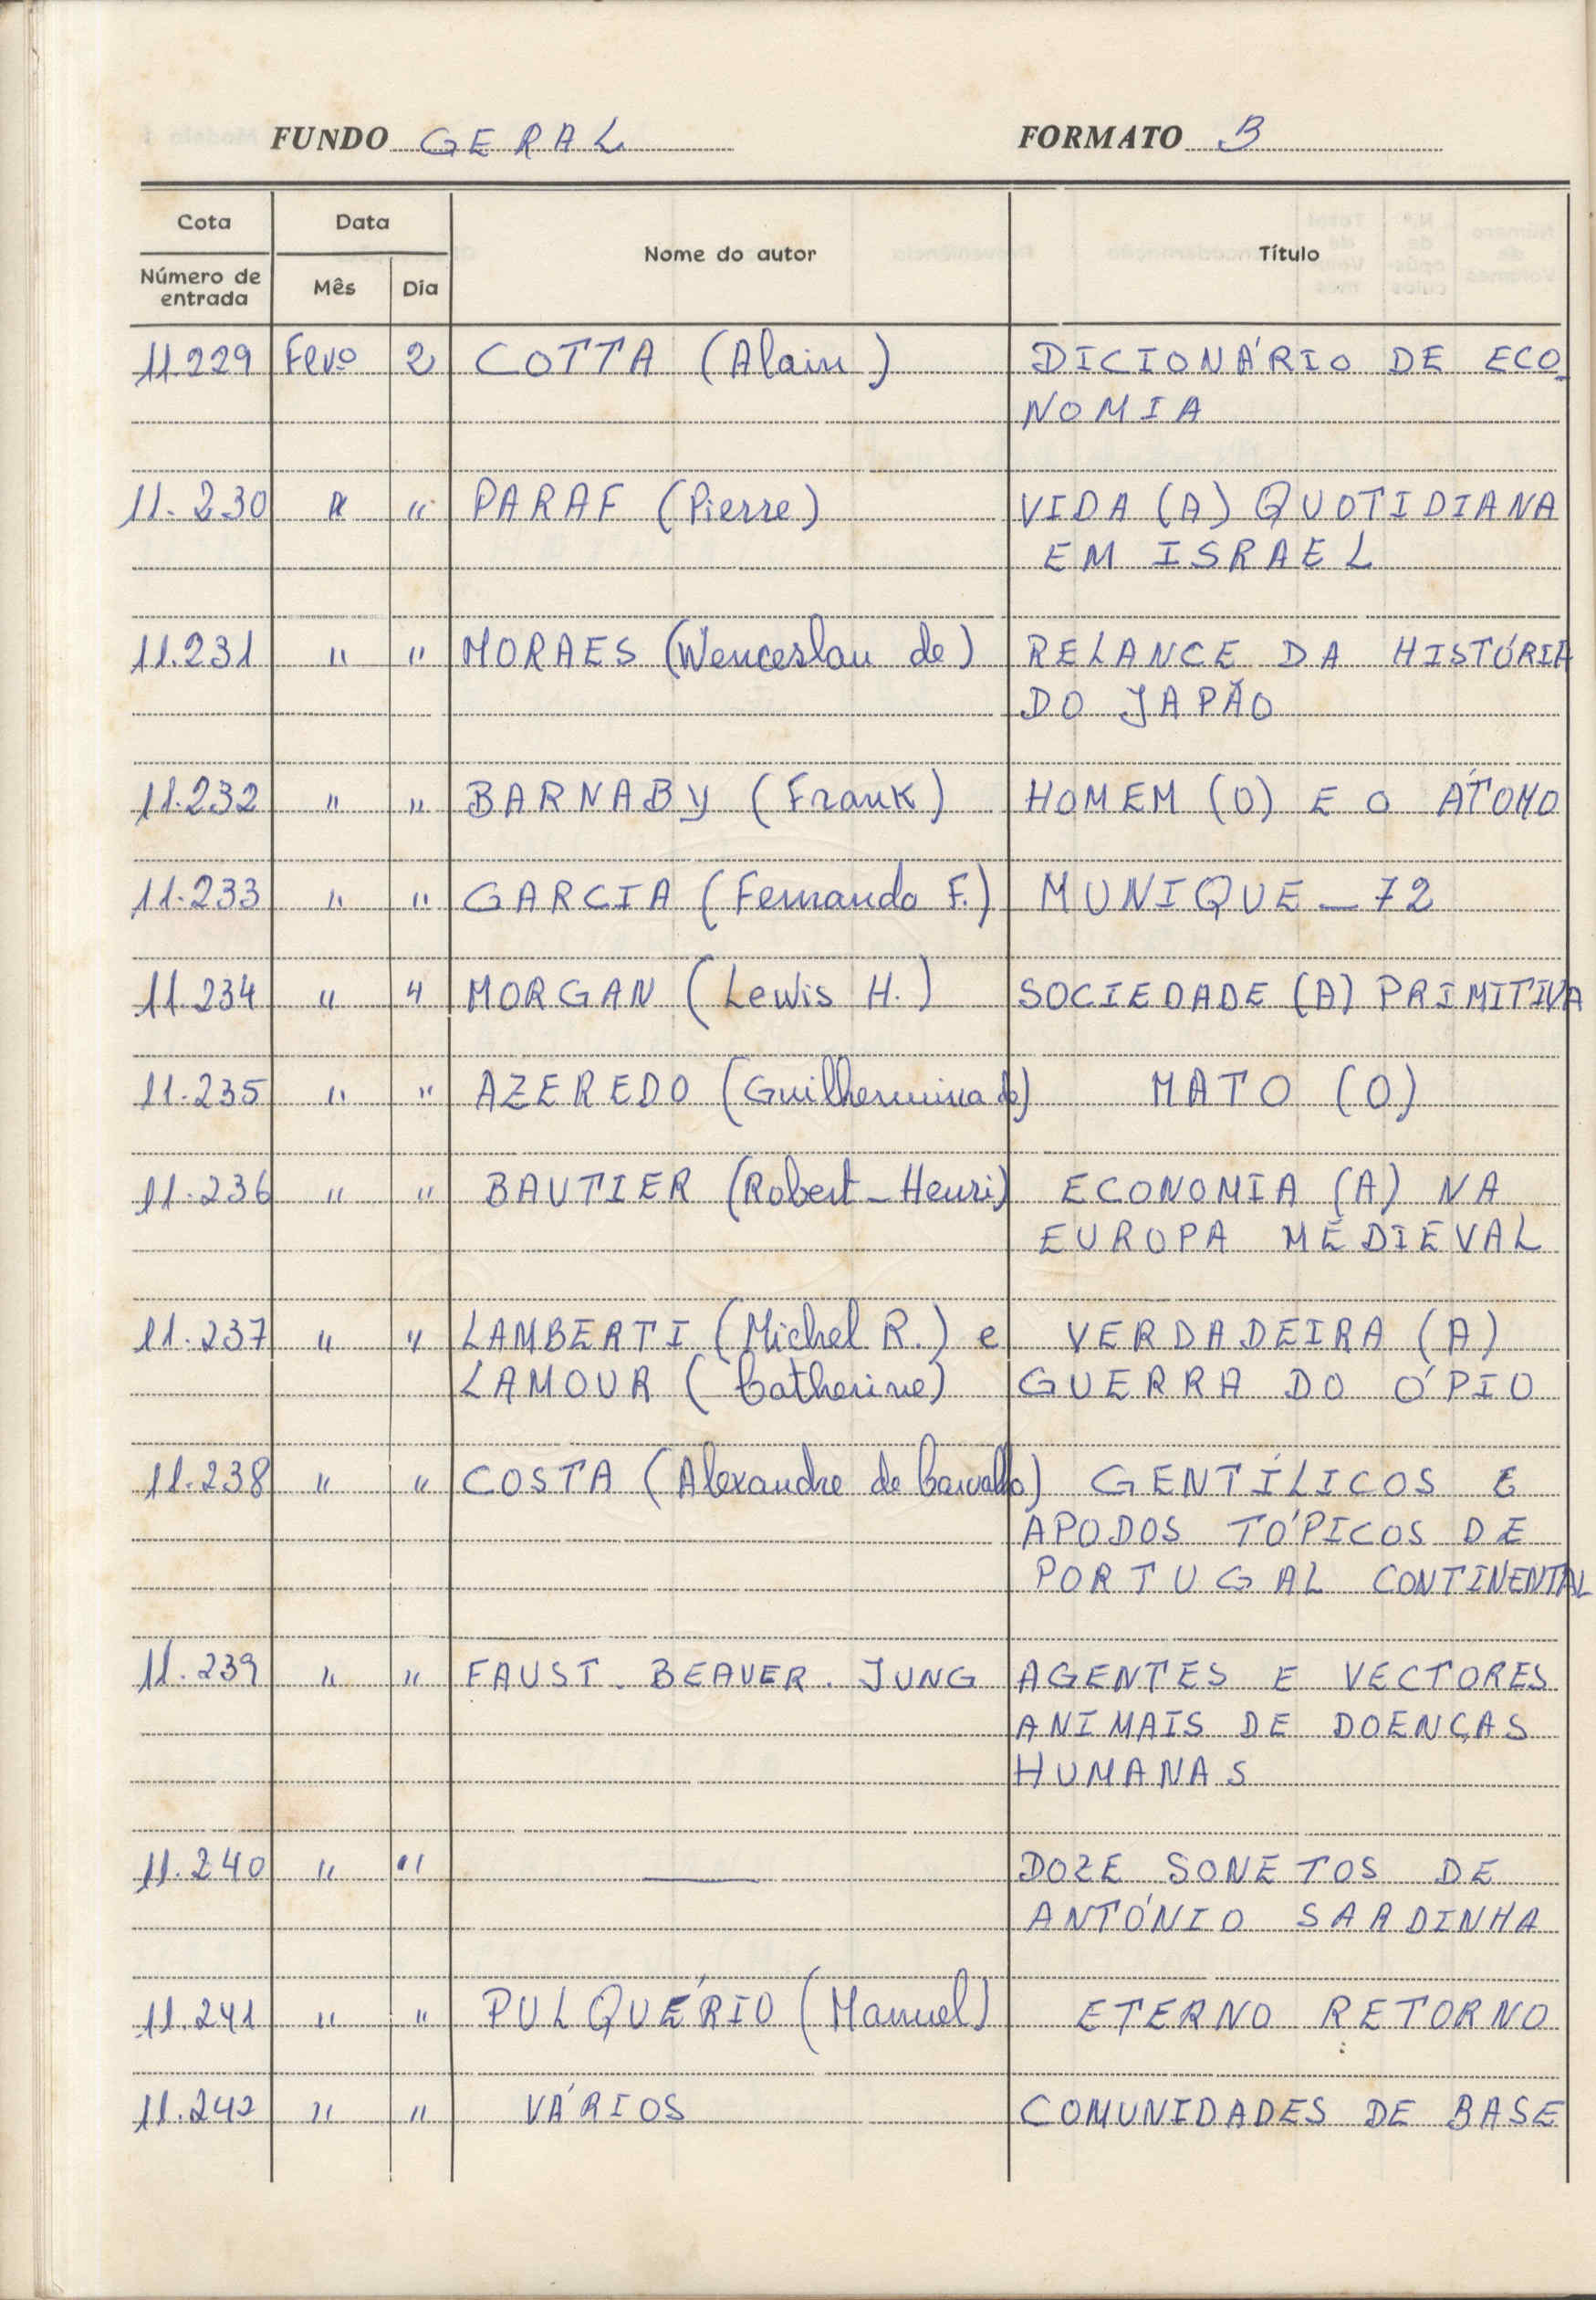 FUNDO GERAL FORMATO B
Cota Data Nome do autor Título
Número de entrada Mês Dia
11.229 Fevº 2 COTTA (Alain) DICIONÁRIO DE ECO_
NOMIA
11.230 " " PARAF (Pierre) VIDA (A) QUOTIDIANA
EM ISRAEL
11.231 " " MORAES (Wenceslau de) RELANCE DA HISTÓRIA
DO JAPÃO
11.232 " " BARNABY (Frank) HOMEM (O) E O ÁTOMO
11.233 " " GARCIA (Fernando F.) MUNIQUE _ 72
11.234 " " MORGAN (Lewis H.) SOCIEDADE (A) PRIMITIVA
11.235 " " AZEREDO (Guilhermina de) MATO (O)
11.236 " " BAUTIER (Robert_Henri) ECONOMIA (A) NA
EUROPA MEDIEVAL
11.237 " " LAMBERTI (Michel R.) e VERDADEIRA (A)
LAMOUR (Catherine) GUERRA DO ÓPIO
11.238 " " COSTA (Alexandre de Carvalho) GENTÍLICOS E
APODOS TÓPICOS DE
PORTUGAL CONTINENTAL
11.239 " " FAUST. BEAVER. JUNG AGENTES E VECTORES
ANIMAIS DE DOENÇAS
HUMANAS
11.240 " " — DOZE SONETOS DE
ANTÓNIO SARDINHA
11.241 " " PULQUÉRIO (Manuel) ETERNO RETORNO
11.242 " " VÁRIOS COMUNIDADES DE BASE